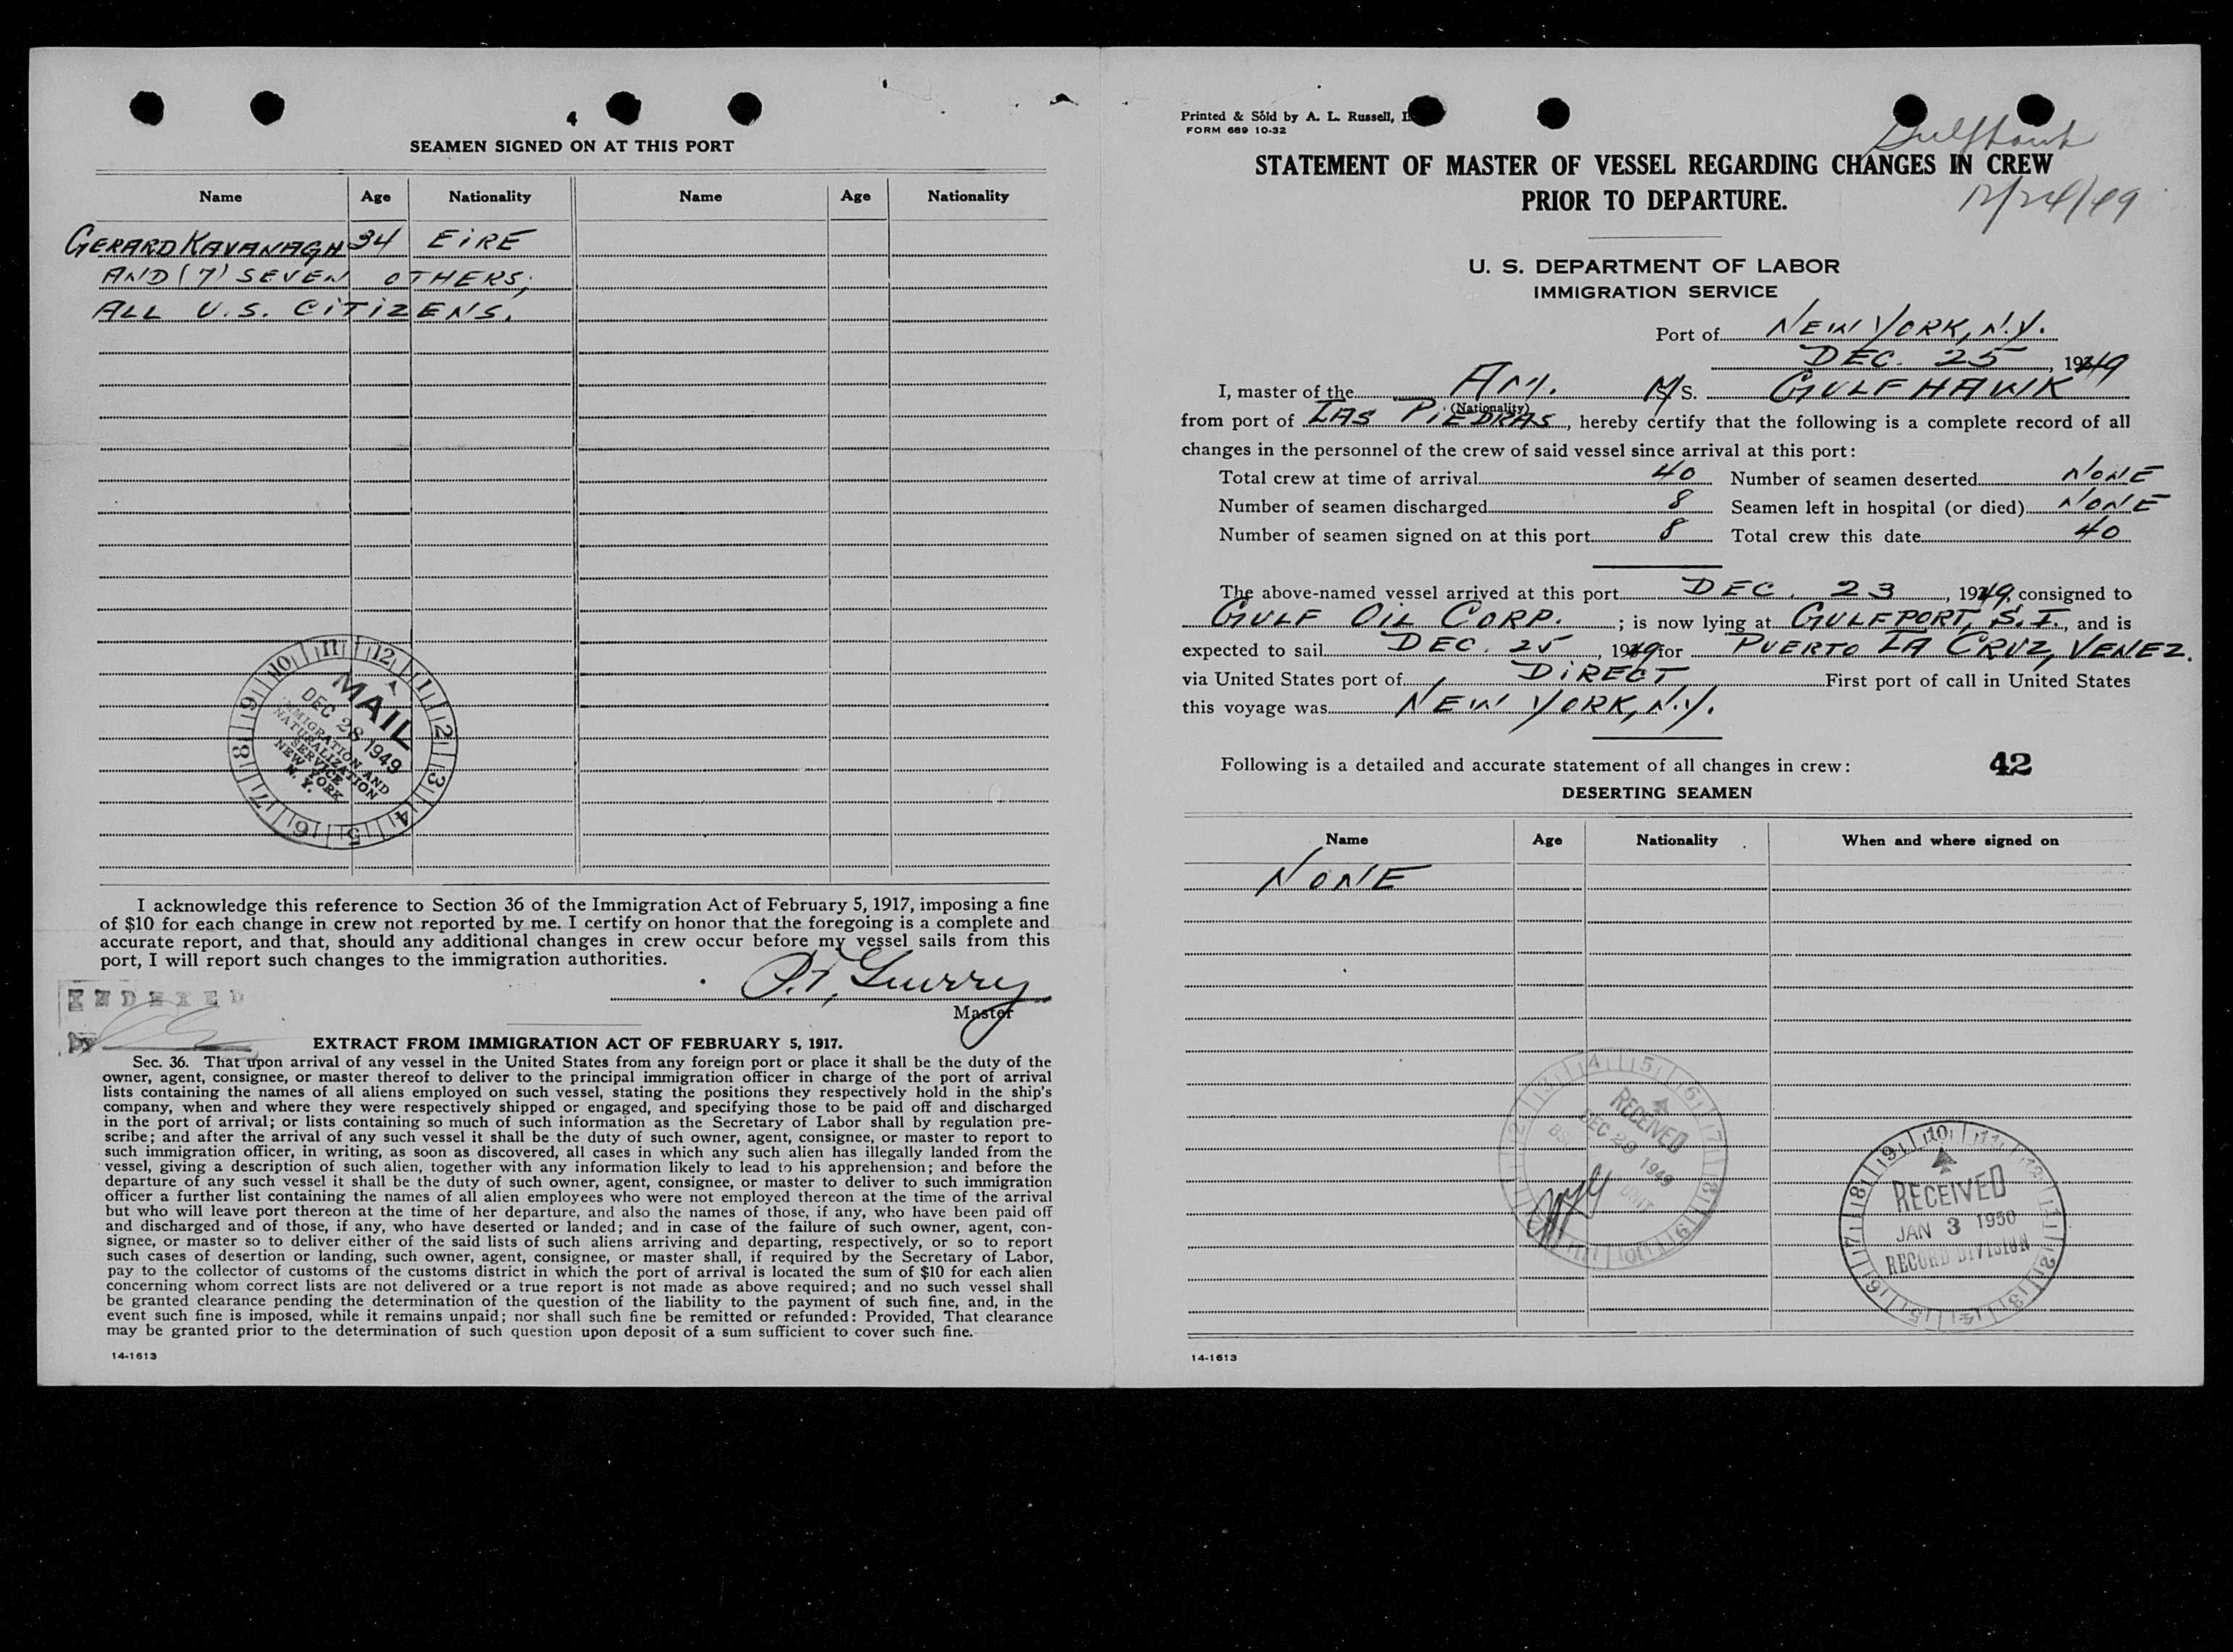 4
SEAMEN SIGNED ON AT THIS PORT
Name Age Nationality Name Age Nationality
GERARD KAVANAGH 34 EIRE
AND (7) SEVEN OTHERS,
ALL U.S. CITIZENS.
11 12 1 2 3 4 5 6 7 8 9 10
MAIL
DEC 28 1949
IMMIGRATION AND
NATURALIZATION
SERVICE
NEW YORK
N. Y.
I acknowledge this reference to Section 36 of the Immigration Act of February 5, 1917, imposing a fine
of $10 for each change in crew not reported by me. I certify on honor that the foregoing is a complete and
accurate report, and that, should any additional changes in crew occur before my vessel sails from this
port, I will report such changes to the immigration authorities.
Master
INDEXED
by
EXTRACT FROM IMMIGRATION ACT OF FEBRUARY 5, 1917.
Sec. 36. That upon arrival of any vessel in the United States from any foreign port or place it shall be the duty of the
owner, agent, consignee, or master thereof to deliver to the principal immigration officer in charge of the port of arrival
lists containing the names of all aliens employed on such vessel, stating the positions they respectively hold in the ship's
company, when and where they were respectively shipped or engaged, and specifying those to be paid off and discharged
in the port of arrival; or lists containing so much of such information as the Secretary of Labor shall by regulation pre-
scribe; and after the arrival of any such vessel it shall be the duty of such owner, agent, consignee, or master to report to
such immigration officer, in writing, as soon as discovered, all cases in which any such alien has illegally landed from the
vessel, giving a description of such alien, together with any information likely to lead to his apprehension; and before the
departure of any such vessel it shall be the duty of such owner, agent, consignee, or master to deliver to such immigration
officer a further list containing the names of all alien employees who were not employed thereon at the time of the arrival
but who will leave port thereon at the time of her departure, and also the names of those, if any, who have been paid off
and discharged and of those, if any, who have deserted or landed; and in case of the failure of such owner, agent, con-
signee, or master so to deliver either of the said lists of such aliens arriving and departing, respectively, or so to report
such cases of desertion or landing, such owner, agent, consignee, or master shall, if required by the Secretary of Labor,
pay to the collector of customs of the customs district in which the port of arrival is located the sum of $10 for each alien
concerning whom correct lists are not delivered or a true report is not made as above required; and no such vessel shall
be granted clearance pending the determination of the question of the liability to the payment of such fine, and, in the
event such fine is imposed, while it remains unpaid; nor shall such fine be remitted or refunded: Provided, That clearance
may be granted prior to the determination of such question upon deposit of a sum sufficient to cover such fine.
14-1613
Printed & Sold by A. L. Russell,
FORM 689 10-32
Gulfhawk
STATEMENT OF MASTER OF VESSEL REGARDING CHANGES IN CREW
PRIOR TO DEPARTURE.
12/24/49
U. S. DEPARTMENT OF LABOR
IMMIGRATION SERVICE
Port of NEW YORK, N.Y.
DEC. 25, 1949
I, master of the AM. M/S. GULFHAWK
(Nationality)
from port of LAS PIEDRAS, hereby certify that the following is a complete record of all
changes in the personnel of the crew of said vessel since arrival at this port:
Total crew at time of arrival 40 Number of seamen deserted NONE
Number of seamen discharged 8 Seamen left in hospital (or died) NONE
Number of seamen signed on at this port 8 Total crew this date 40
The above-named vessel arrived at this port DEC. 23, 1949, consigned to
GULF OIL CORP.; is now lying at GULFPORT, S.I., and is
expected to sail DEC. 25, 1949 for PUERTO LA CRUZ, VENEZ.
via United States port of DIRECT First port of call in United States
this voyage was NEW YORK, N.Y.
Following is a detailed and accurate statement of all changes in crew: 42
DESERTING SEAMEN
Name Age Nationality When and where signed on
NONE
RECEIVED
DEC 29 1949
BSI UNIT
RECEIVED
JAN 3 1950
RECORD DIVISION
14-1613